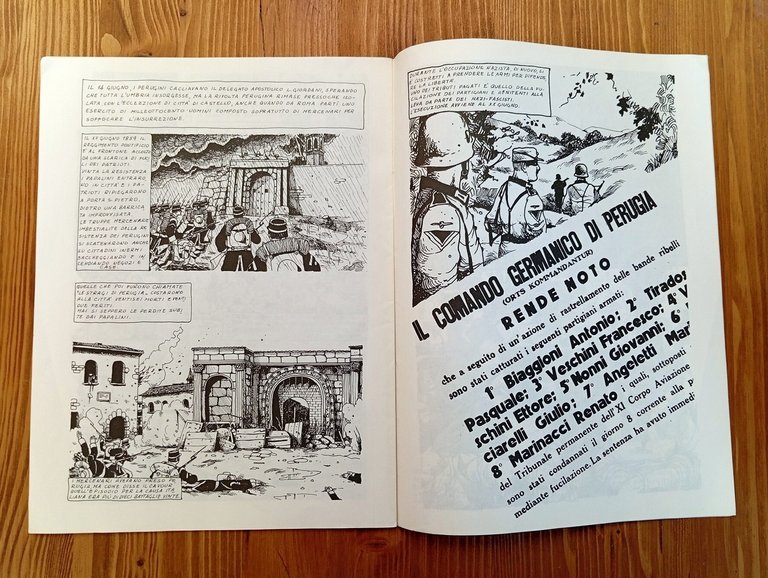 IL 14 GIUGNO, I PERUGINI CACCIAVANO IL DELEGATO APOSTOLICO L. GIORDANI, SPERANDO
CHE TUTTA L'UMBRIA INSORGESSE, MA LA RIVOLTA PERUGINA RIMASE PRESSOCHÉ ISO-
LATA CON L'ECLEZIONE DI CITTÀ DI CASTELLO, ANCHE QUANDO DA ROMA PARTÌ UN
ESERCITO DI MILLEOTTOCENTO UOMINI COMPOSTO SOPRATUTTO DI MERCENARI PER
SOFFOCARE L'INSURREZIONE.
IL XX GIUGNO 1859 IL
REGGIMENTO PONTIFICIO
È AL FRONTONE ACCOLTO
DA UNA SCARICA DI FUCI
LI DEI PATRIOTI
VINTA LA RESISTENZA
I PAPALINI ENTRARO
NO IN CITTÀ E I PA-
TRIOTI RIPIEGARONO
A PORTA S. PIETRO,
DIETRO UNA BARRICA
TA IMPROVVISATA.
LE TRUPPE MERCENARIE
IMBESTIALITE DELLA RE
SISTENZA DEI PERUGINI
SI SCATENARONO ANCHE
SU CITTADINI INERMI
SACCHEGGIANDO E IN
CENDIANDO NEGOZI E
CASE
QUELLE CHE POI FURONO CHIAMATE
"LE STRAGI DI PERUGIA" COSTARONO
ALLA CITTÀ VENTISEI MORTI E VENTI
DUE FERITI.
MAI SI SEPPERO LE PERDITE SUBI
TE DAI PAPALINI.
I MERCENARI AVEVANO PRESO PE
RUGIA, MA COME DISSE IL CAVOUR
QUELL'EPISODIO PER LA CAUSA ITA
LIANA ERA PIÙ DI DIECI BATTAGLIE VINTE
DURANTE L'OCCUPAZIONE NAZISTA, DI NUOVO, SI
È COSTRETTI A PRENDERE LE ARMI PER DIFENDE
RE LA LIBERTÀ.
UNO DEI TRIBUTI PAGATI È QUELLO DELLA FU-
CILAZIONE DEI PARTIGIANI E RENITENTI ALLA
LEVA DA PARTE DEI NAZI-FASCISTI.
L'ESECUZIONE AVVIENE AL XX GIUGNO.
IL COMANDO GERMANICO DI PERUGIA
(ORTS KOMMANDANTUR)
RENDE NOTO
che a seguito di un'azione di rastrellamento delle bande ribelli
sono stati catturati i seguenti partigiani armati:
1° Biaggioni Antonio; 2° Tirados
Pasquale; 3° Veschini Francesco; 4° V
schini Ettore; 5° Nonni Giovanni; 6°
ciarelli Giulio; 7° Angeletti Mar
8° Marinacci Renato i quali, sottoposti
del Tribunale permanente dell'XI Corpo Aviazione
sono stati condannati il giorno 8 corrente alla p
mediante fucilazione. La sentenza ha avuto immedi